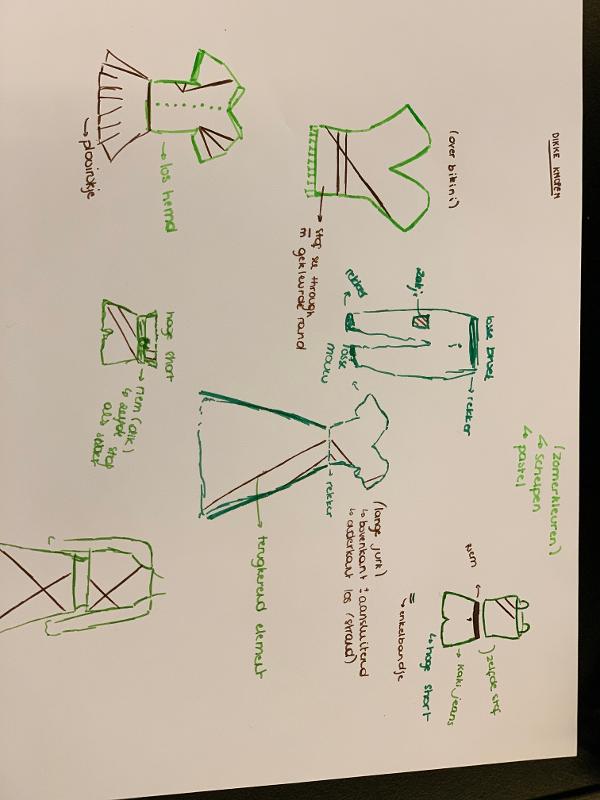 DIKKE KNOPEN
(zomerkleuren)
↳ schelpen
↳ pastel
(over bikini)
→ stof see through
m gekleurde rand
→ los hemd
→ plooirokje
losse broek
→ rekker
zakje
rekker
losse
mouw
hoge short
→ riem (dik)
↳ zelfde stof
als short
→ rekker
(lange jurk)
↳ bovenkant: aansluitend
↳ onderkant los (strand)
→ terugkerend element
riem
zelfde stof
→ kaki jeans
↳ hoge short
=
→ enkelbandje